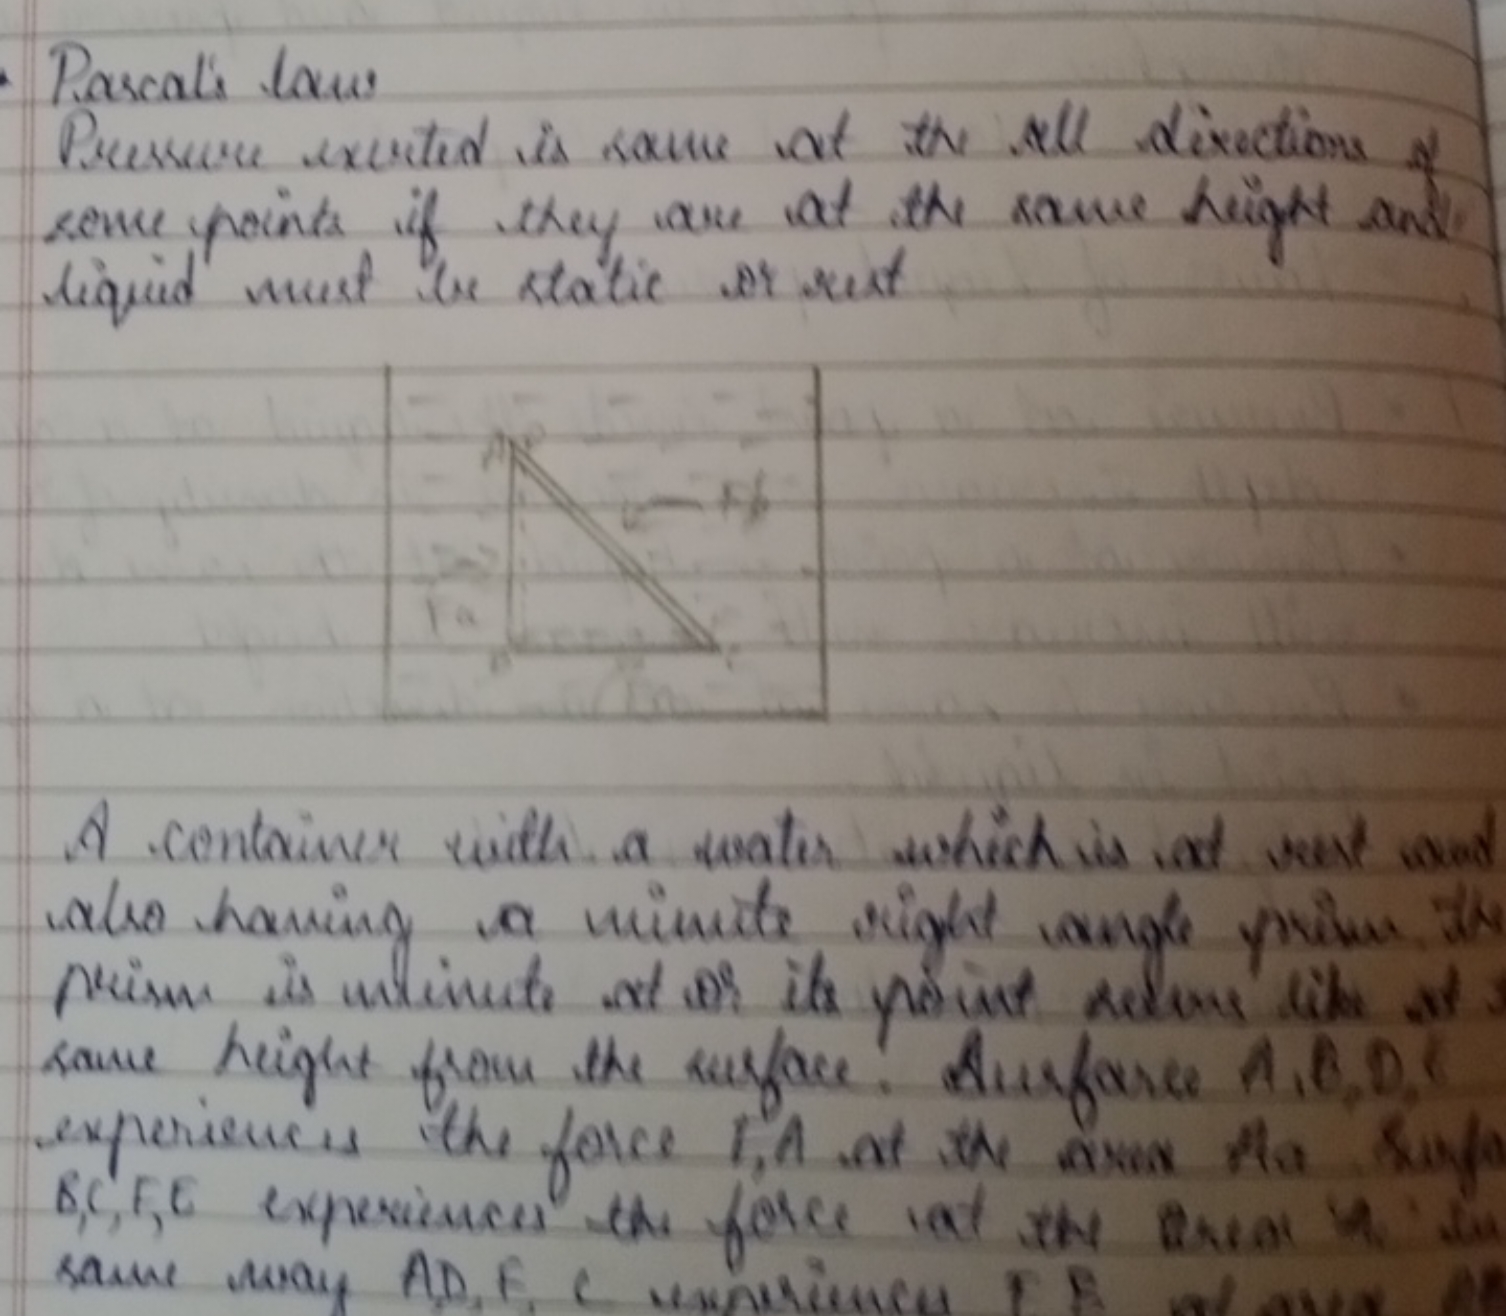 Pascal's law
Pressure exerted is same at the all directions of
some points if they are at the same height and
liquid must be static or rest
A
Fb
Fa
B
C
A container with a water which is at rest and
also having a minute right angle prism the
prism is minute at or its point seems like at
same height from the surface. Surface A,B,D,E
experiences the force F,A at the area Aa
B,C,F,E experiences the force at the area
same way A,D,F,C experiences F B at area